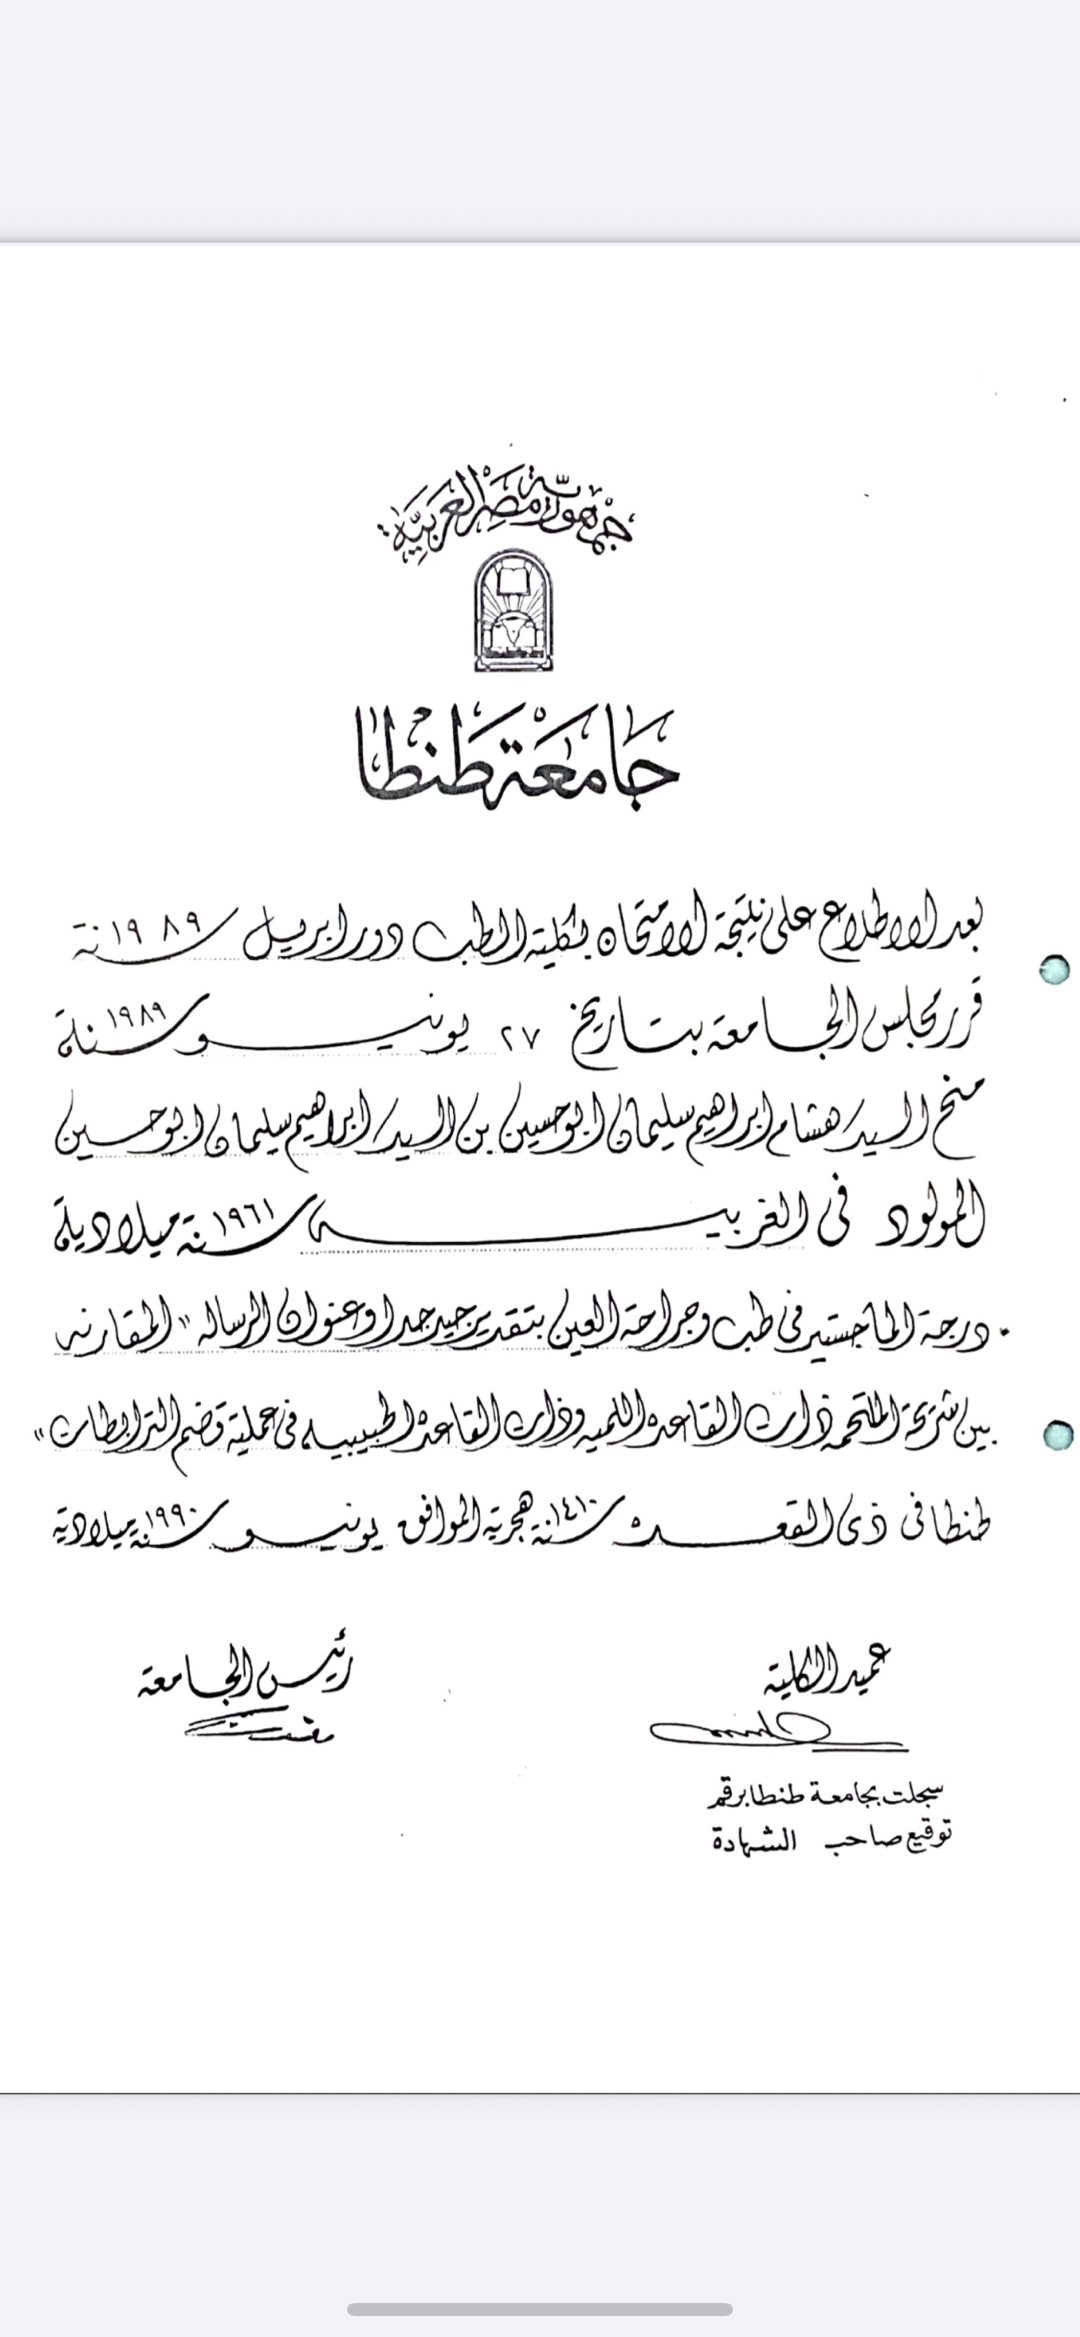 جمهورية مصر العربية
جامعة طنطا
بعد الاطلاع على نتيجة الامتحان بكلية الطب دور ابريل سنة ١٩٨٩
قرر مجلس الجامعة بتاريخ ٢٧ يونيو سنة ١٩٨٩
منح السيد/ هشام ابراهيم سليمان ابوحسين بن السيد/ ابراهيم سليمان ابوحسين
المولود فى الغربيه سنة ١٩٦١ ميلادية
درجة الماجستير فى طب وجراحة العين بتقدير جيد جدا وعنوان الرساله " المقارنه
بين شريحة الملتحمه ذات القاعده اللمبيه وذات القاعده الجيبيه فى عملية قضم الترابطات "
طنطا فى ذى القعده سنة ١٤١٠ هجرية الموافق يونيو سنة ١٩٩٠ ميلادية
عميد الكلية
رئيس الجامعة
سجلت بجامعة طنطا برقم
توقيع صاحب الشهادة